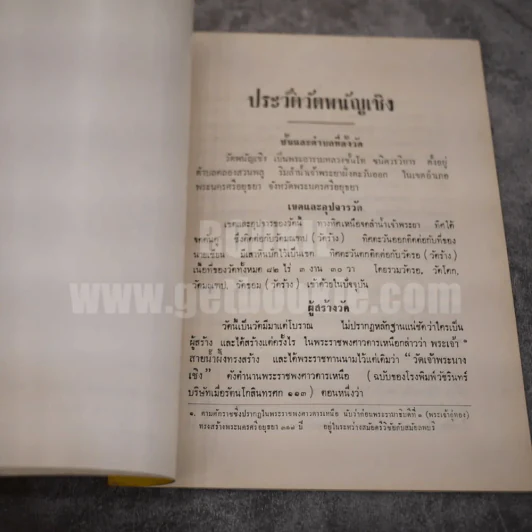 ประวัติวัดพนัญเชิง
ชั้นและตำบลที่ตั้งวัด
วัดพนัญเชิง เป็นพระอารามหลวงชั้นโท ชนิดวรวิหาร ตั้งอยู่
ตำบลคลองสวนพลู ริมลำน้ำเจ้าพระยาฝั่งตะวันออก ในเขตอำเภอ
พระนครศรีอยุธยา จังหวัดพระนครศรีอยุธยา
เขตและอุปจารวัด
เขตและอุปจารของวัดนี้ ทางทิศเหนือจดลำน้ำเจ้าพระยา ทิศใต้
จดคู ซึ่งติดต่อกับวัดมณฑป (วัดร้าง) ทิศตะวันออกติดต่อกับที่ของ
นายเขียน มีเสาหินปักไว้เป็นเขต ทิศตะวันตกติดต่อกับวัดรอ (วัดร้าง)
เนื้อที่ของวัดทั้งหมด ๘๒ ไร่ ๓ งาน ๓๐ วา โดยรวมวัดรอ, วัดโคก,
วัดมณฑป, วัดขอม (วัดร้าง) เข้าด้วยในปัจจุบัน
ผู้สร้างวัด
วัดนี้เป็นวัดมีมาแต่โบราณ ไม่ปรากฏหลักฐานแน่ชัดว่าใครเป็น
ผู้สร้าง และได้สร้างแต่ครั้งไร ในพระราชพงศาวดารเหนือกล่าวว่า พระเจ้า
สายน้ำผึ้งทรงสร้าง และได้พระราชทานนามไว้แต่เดิมว่า "วัดเจ้าพระนาง
เชิง" ดังคำนานพระราชพงศาวดารเหนือ (ฉบับของโรงพิมพ์วัชรินทร์
บริษัทเมื่อรัตนโกสินทรศก ๑๑๓) ตอนหนึ่งว่า
๑. ตามศักราชซึ่งปรากฏในพระราชพงศาวดารเหนือ นับว่าก่อนพระรามาธิบดีที่ ๑ (พระเจ้าอู่ทอง)
ทรงสร้างพระนครศรีอยุธยา ปี
www.getabooke.com